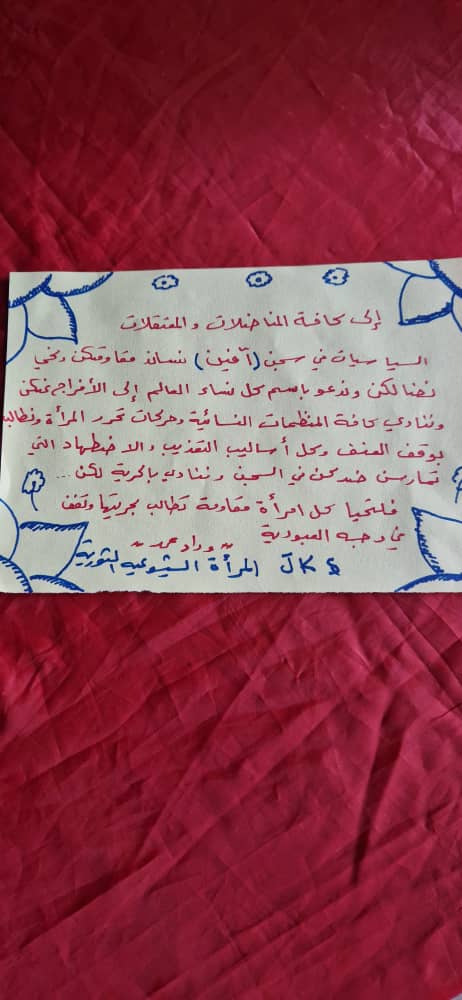 إلى كافة المناضلات والمعتقلات
السياسيات في سجن (آفين) نساند مقاومتكن ونحي
نضالكن وندعو باسم كل نساء العالم إلى الأفراج عنكن
وننادي كافة المنظمات النسائية وحركات تحرر المرأة ونطالب
بوقف العنف وكل أساليب التعذيب والاضطهاد التي
تمارس ضدكن في السجن وننادي بالحرية لكن...
فلتحيا كل امرأة مقاومة تطالب بحريتها وتقف
في وجه العبودية
~ وداد حمد ~
المرأة الشيوعية الثورية JK